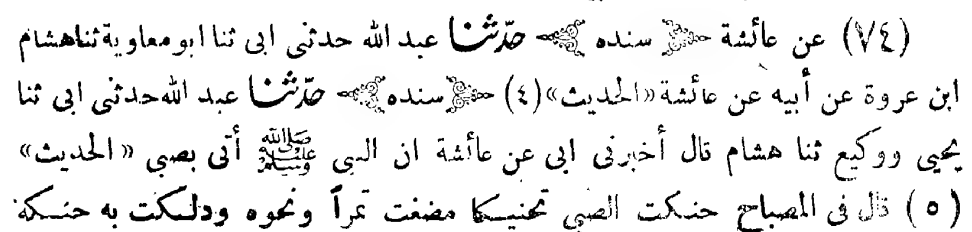 (٧٤) عن عائشة سنده حدّثنا عبد الله حدثنى ابى ثنا ابو معاوية ثنا هشام
ابن عروة عن أبيه عن عائشة «الحديث» (٤) سنده حدّثنا عبد الله حدثنى ابى ثنا
يحيى ووكيع ثنا هشام قال أخبرنى ابى عن عائشة ان النبى ﷺ أتى بصبى «الحديث»
(٥) قال فى المصباح حنكت الصبى تحنيكا مضغت تمراً ونحوه ودلكت به حنكه